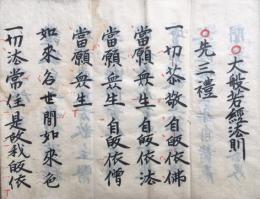 〇大般若經法則
〇先三禮
一切恭敬 自皈依佛
當願衆生 自皈依法
當願衆生 自皈依僧
當願衆生
如來各世間如來色
一切法常住是故我皈依